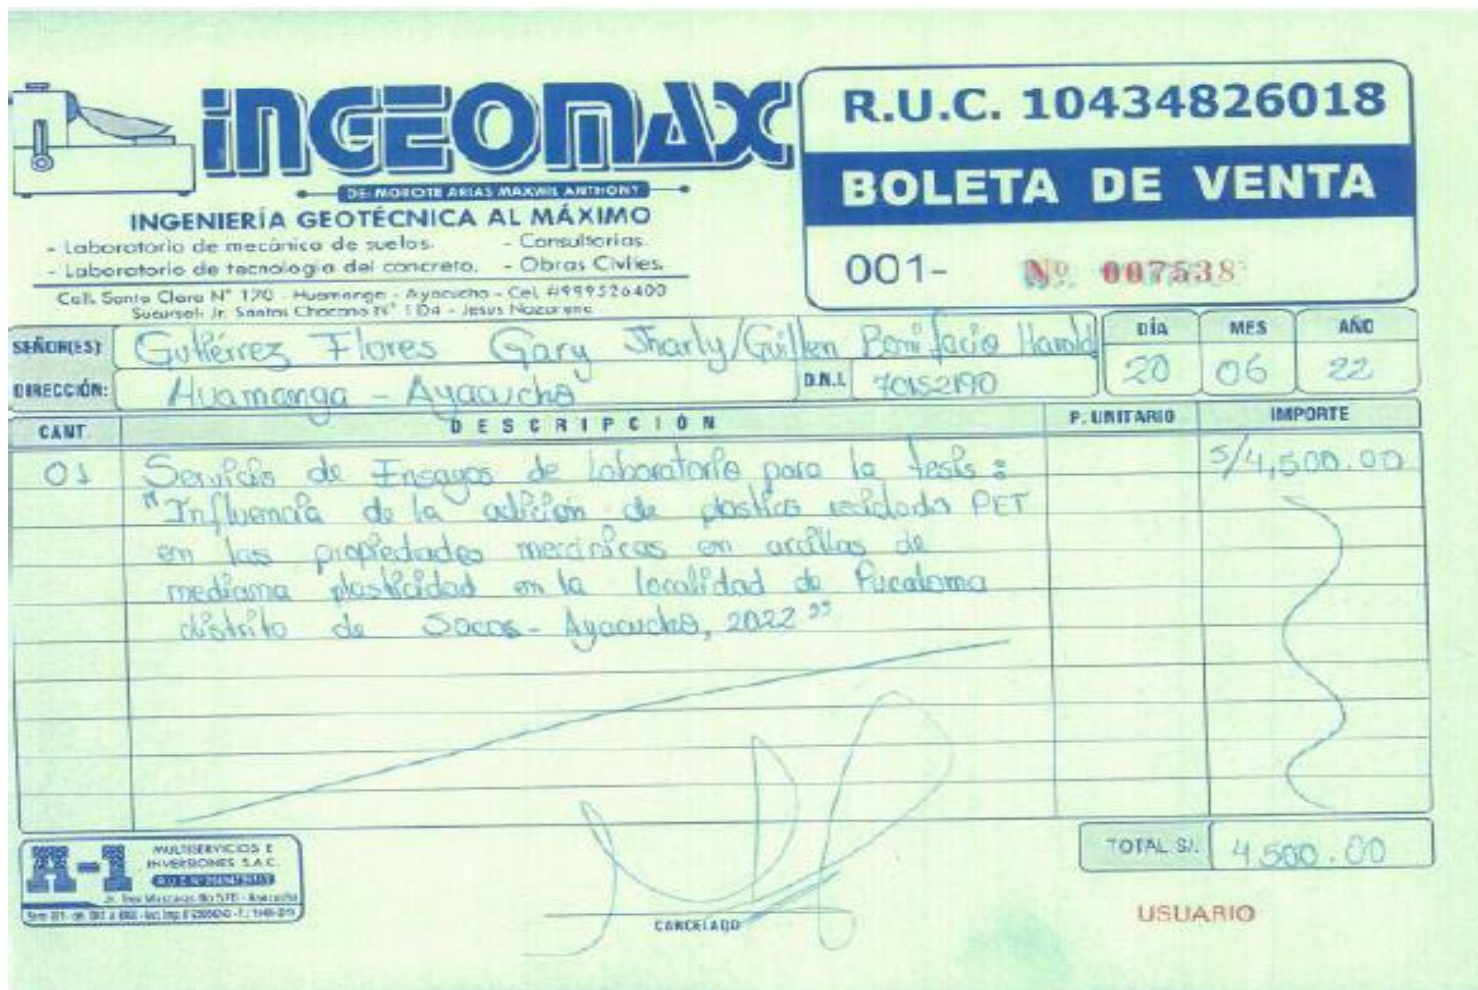 INGEOMAX
DE: MOROTE ARIAS MAXWIL ANTHONY
INGENIERÍA GEOTÉCNICA AL MÁXIMO
- Laboratorio de mecánica de suelos. - Consultorias.
- Laboratorio de tecnologia del concreto. - Obras Civiles.
Call. Santa Clara N° 170 - Huamanga - Ayacucho - Cel. #999526400
Sucursal: Jr. Santos Chocano N° 104 - Jesus Nazareno
R.U.C. 10434826018
BOLETA DE VENTA
001- Nº 007538
SEÑOR(ES): Gutiérrez Flores Gary Jharly/Guillen Bonifacio Harold
DÍA MES AÑO
20 06 22
DIRECCIÓN: Huamanga - Ayacucho D.N.I. 70152190
CANT. DESCRIPCIÓN P. UNITARIO IMPORTE
01 Servicio de Ensayos de laboratorio para la tesis: S/4,500.00
"Influencia de la adición de plastico reciclado PET
en las propiedades mecánicas en arcillas de
mediana plasticidad en la localidad de Pucaloma
distrito de Socos - Ayacucho, 2022"
A-1 MULTISERVICIOS E
INVERSIONES S.A.C.
TOTAL S/. 4,500.00
CANCELADO
USUARIO